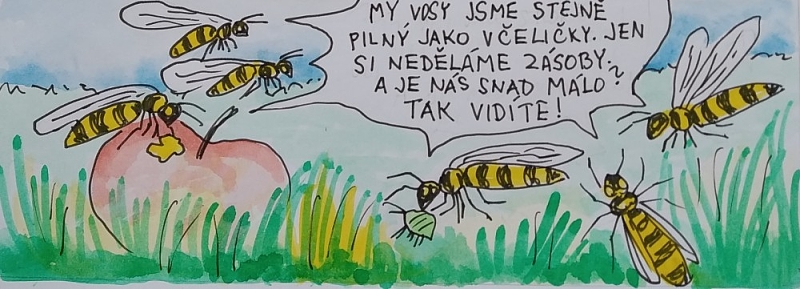 MY VOSY JSME STEJNĚ
PILNÝ JAKO VČELIČKY. JEN
SI NEDĚLÁME ZÁSOBY.
A JE NÁS SNAD MÁLO?
TAK VIDÍTE!